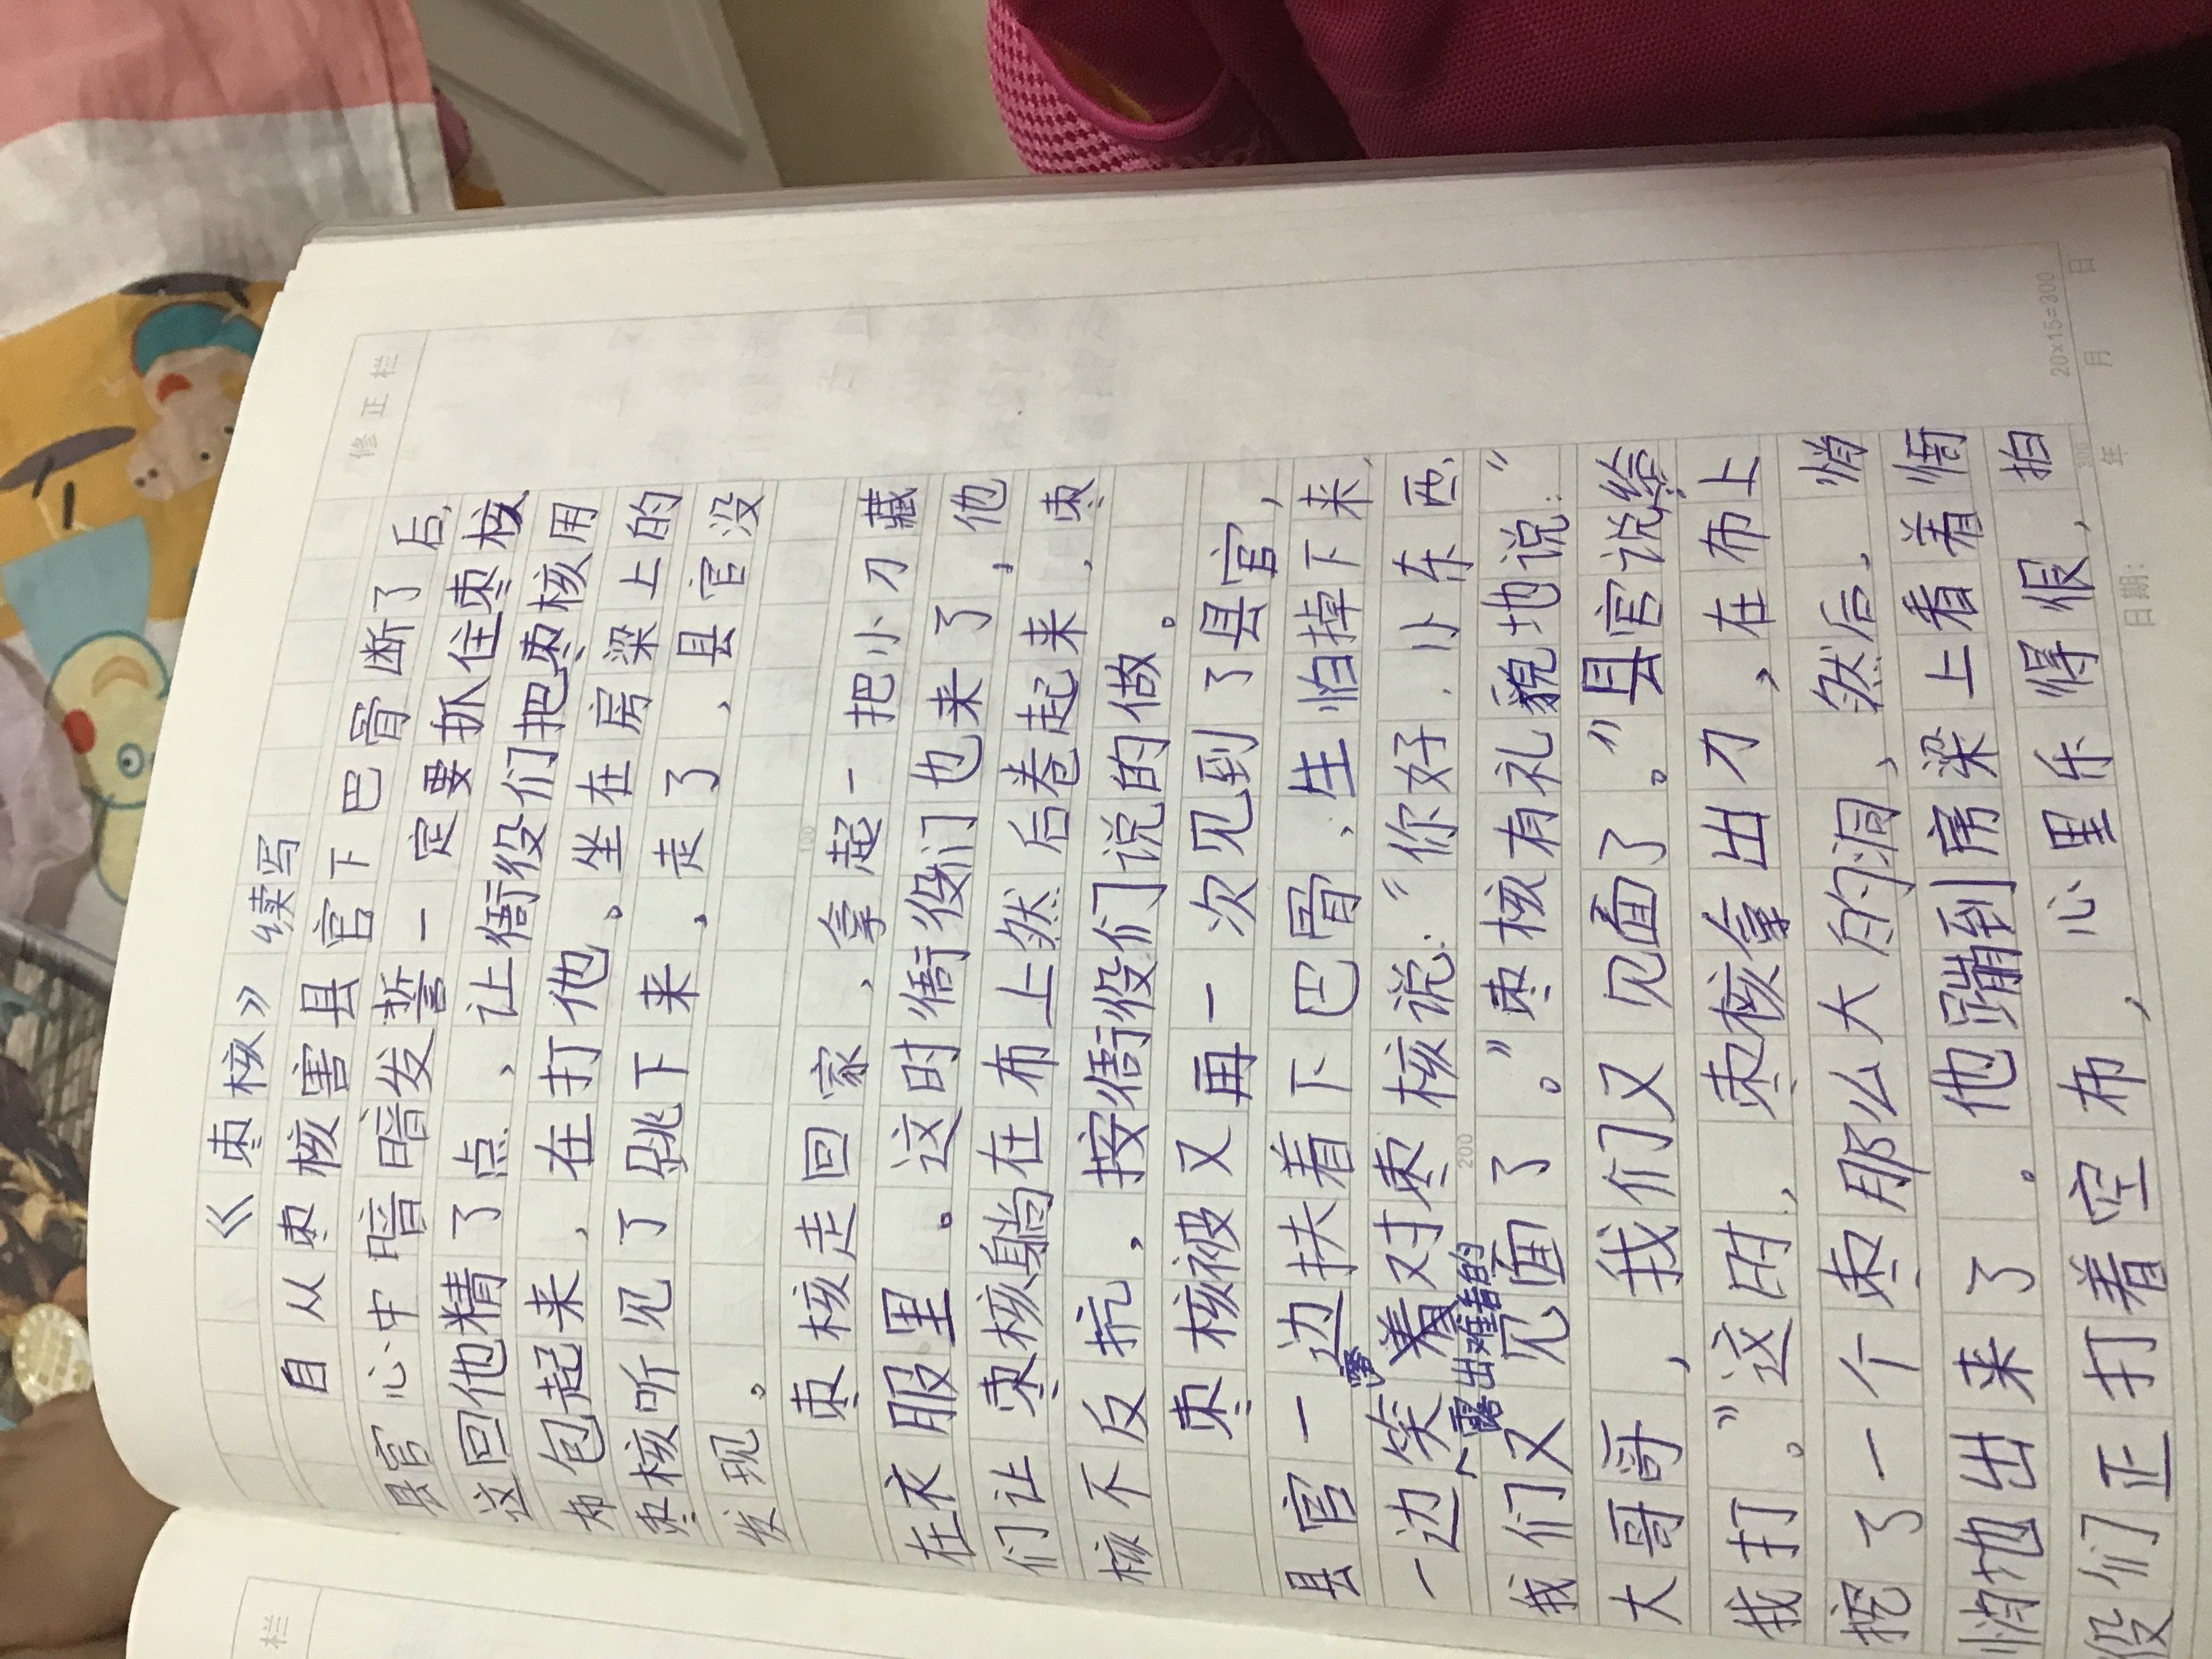 修正栏
《枣核》续写
自从枣核害县官下巴骨断了后,
县官心中暗暗发誓一定要抓住枣核
这回他精了点,让衙役们把枣核用
布包起来,在打他。坐在房梁上的
枣核听见了跳下来,走了,县官没
发现。
100
枣核走回家,拿起一把小刀藏
在衣服里。这时衙役们也来了,他
们让枣核躺在布上然后卷起来,枣
核不反抗,按衙役们说的做。
枣核被又再一次见到了县官,
县官一边扶着下巴骨、生怕掉下来,
一边笑着对枣核说:“你好,小东西、
露出难看的
200
我们又见面了。”枣核有礼貌地说:“
大哥哥,我们又见面了。”县官说:给
我打。”这时,枣核拿出刀,在布上
挖了一个枣那么大的洞,然后,悄
悄地出来了。他蹦到房梁上看着衙
役们正打着空布,心里乐得很,拍
300
20×15=300
日期: 年 月 日
栏